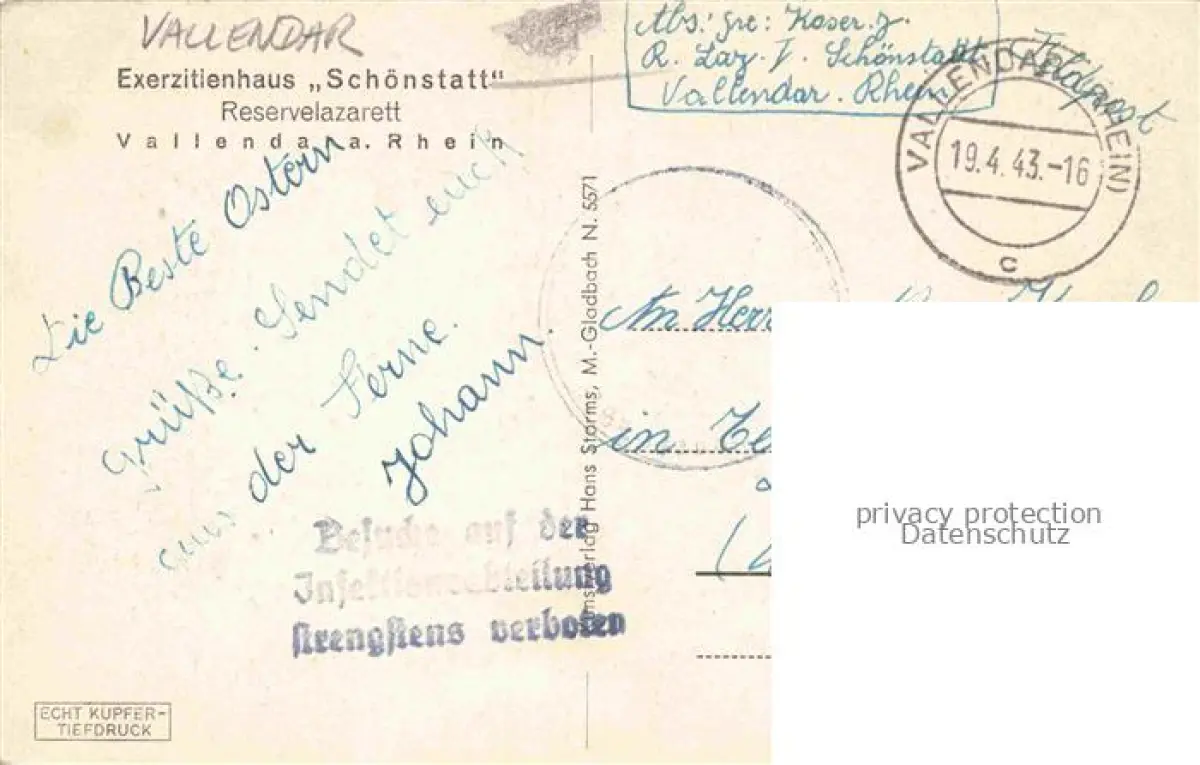 VALLENDAR
Exerzitienhaus „Schönstatt"
Reservelazarett
Vallendar a. Rhein
Die Beste Ostern
Grüße. Sendet euch
aus der Ferne.
Johann.
Besuche auf der
Infektionsabteilung
strengstens verboten
ECHT KUPFER-
TIEFDRUCK
Hans Storms, M.-Gladbach N. 5571
Abs: Gre: Koser. J.
R. Laz. I. Schönstatt
Vallendar. Rhein
Feldpost
VALLENDAR (RHEIN)
19.4.43.-16
c
An Herrn
in
privacy protection
Datenschutz